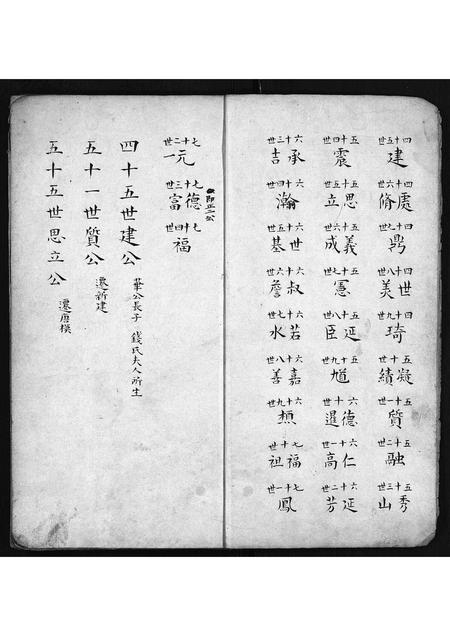 四十五世 建
四十六世 處脩
四十七世
四十八世 世美
四十九世 琦
五十世 凝績
五十一世 質
五十二世 融
五十三世 秀山
五十四世 震
五十五世 思立
五十六世 義成
五十七世 憲
五十八世 延臣
五十九世 馗
六十世 德暹
六十一世 仁高
六十二世 延芳
六十三世 承吉
六十四世 瀚
六十五世 世基
六十六世 叔詹
六十七世 若水
六十八世 嘉善
六十九世
七十世 福祖
七十一世 鳳
七十二世 元一
七十三世 德富
即正二公
七十四世 福四
四十五世建公
華公長子 錢氏夫人所生
五十一世質公
遷新建
五十五世思立公
遷唐模